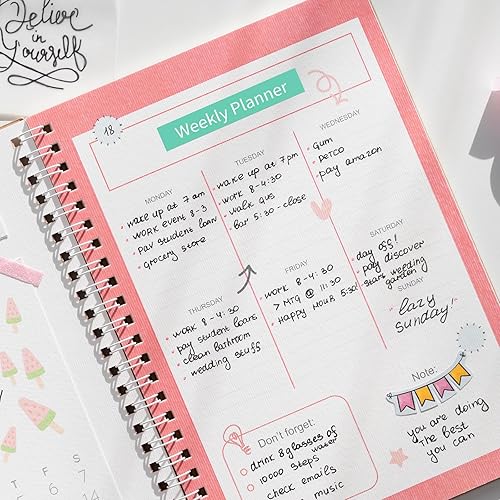 Believe
in
Yourself
18
Weekly Planner
MONDAY
wake up at 7 am
work event 8-3
pay student loan
grocery store
TUESDAY
wake up at 7pm
work 8-4:30
walk Gus
bar 5:30-close
WEDNESDAY
Gum
PETCO
pay amazon
THURSDAY
work 8-4:30
pay student loans
clean bathroom
wedding stuff
FRIDAY
work 8-4:30
> MTG @ 11:30
Happy Hour 5:30
SATURDAY
day off!
pay discover
stars wedding
garden
SUNDAY
"lazy
Sunday!"
Don't forget:
drink 8 glasses of
water
10000 steps
check emails
music
Note:
you are doing
the best
you can
T F S
5 6 7
14